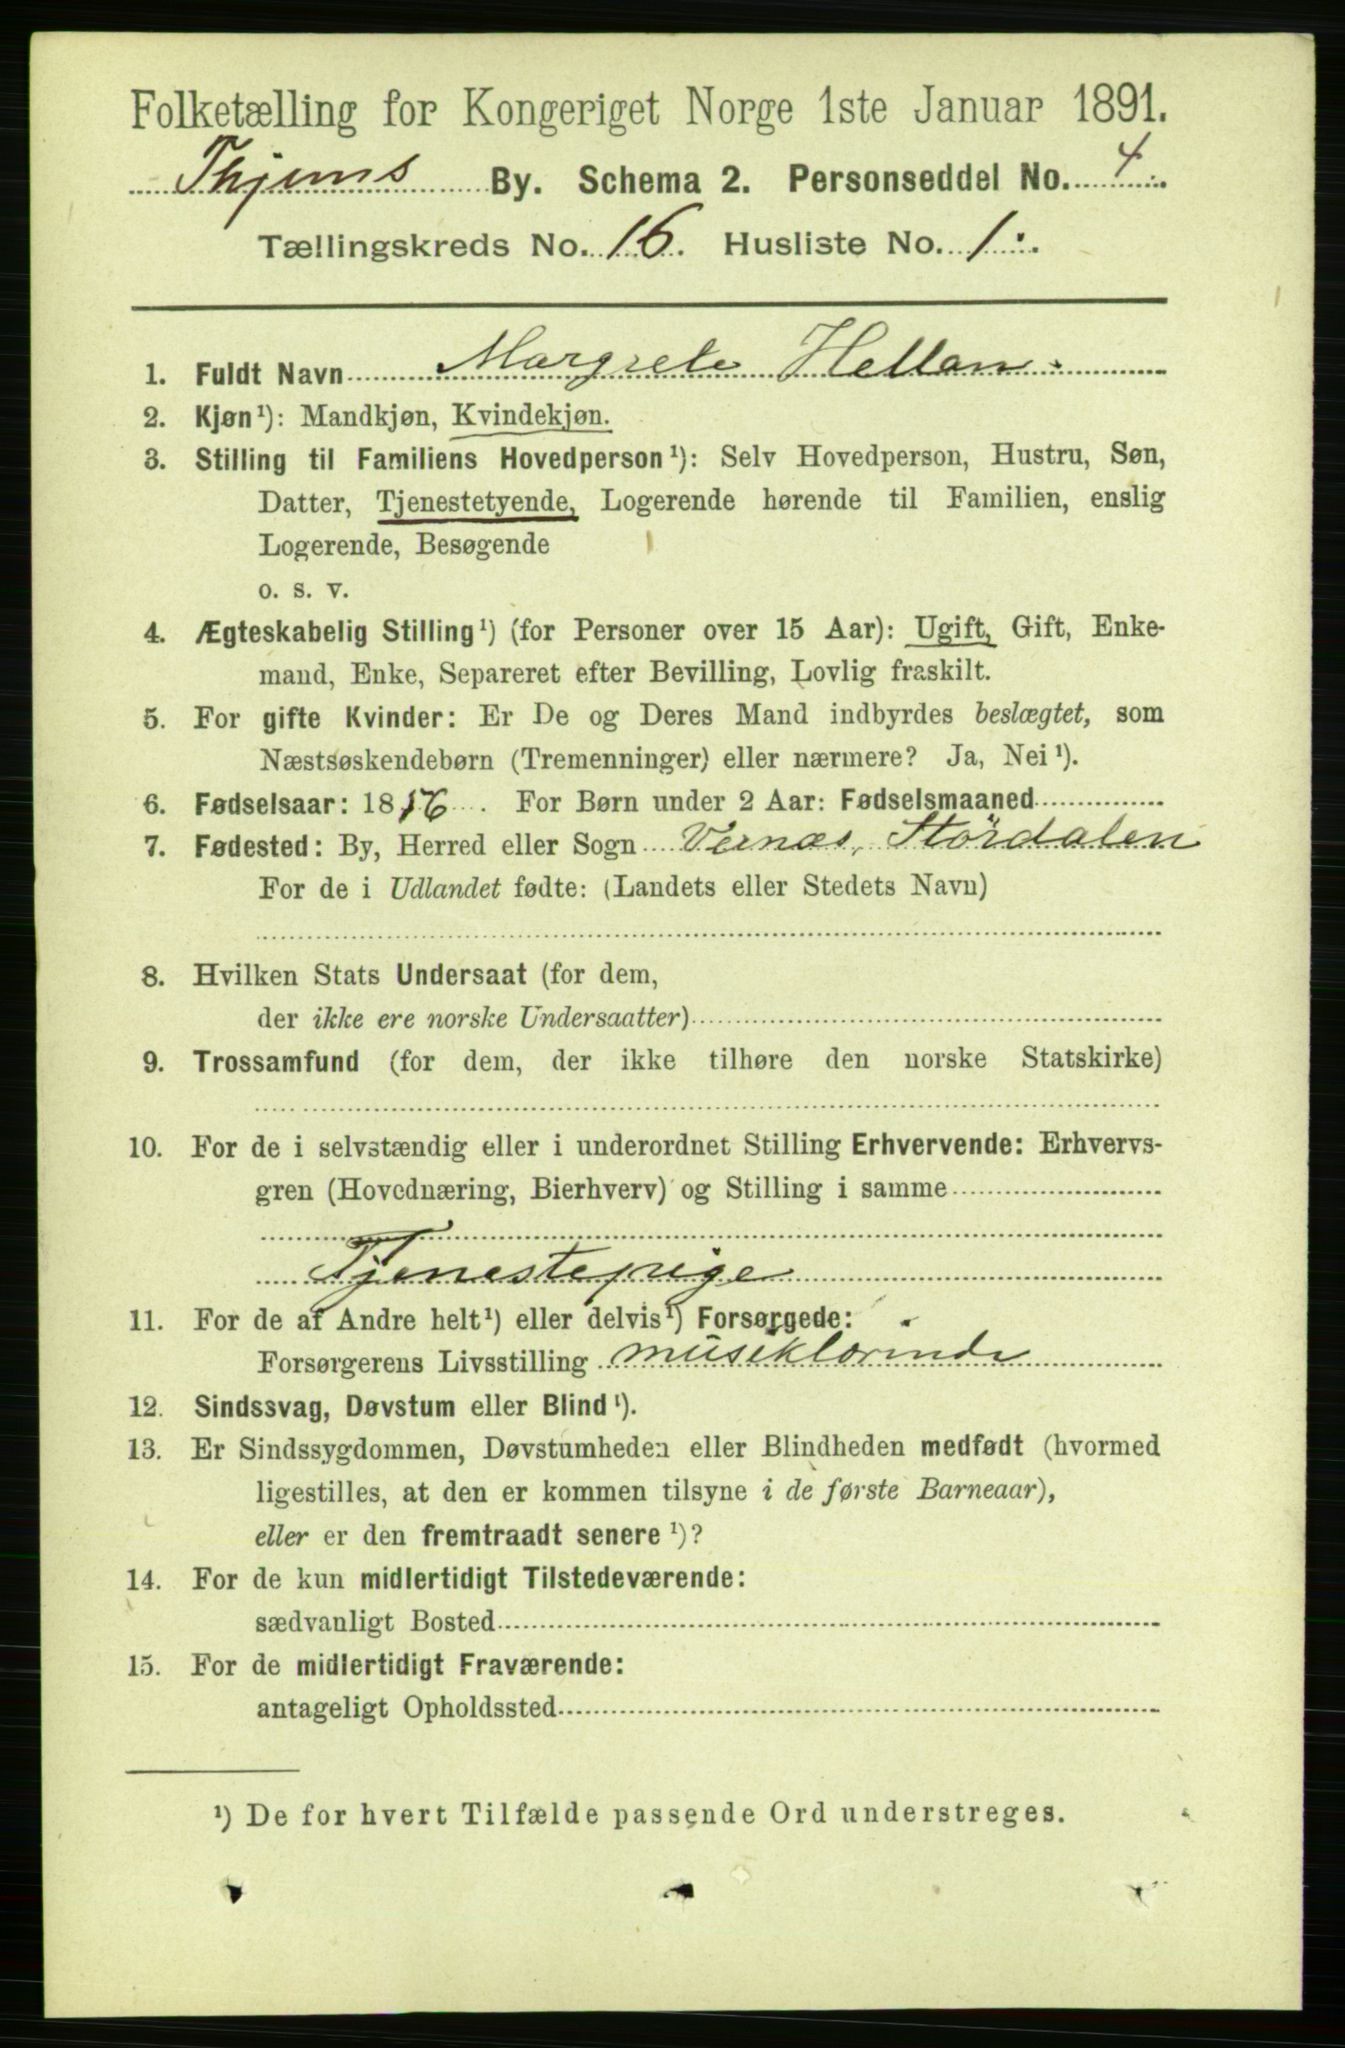 Folketælling for Kongeriget Norge 1ste Januar 1891.
Thjems By. Schema 2. Personseddel No. 4.
Tællingskreds No. 16. Husliste No. 1.
1. Fuldt Navn Margrete Hellan.
2. Kjøn¹): Mandkjøn, Kvindekjøn.
3. Stilling til Familiens Hovedperson¹): Selv Hovedperson, Hustru, Søn,
Datter, Tjenestetyende, Logerende hørende til Familien, enslig
Logerende, Besøgende
o. s. v.
4. Ægteskabelig Stilling¹) (for Personer over 15 Aar): Ugift, Gift, Enke-
mand, Enke, Separeret efter Bevilling, Lovlig fraskilt.
5. For gifte Kvinder: Er De og Deres Mand indbyrdes beslægtet, som
Næstsøskendebørn (Tremenninger) eller nærmere? Ja, Nei¹).
6. Fødselsaar: 1816. For Børn under 2 Aar: Fødselsmaaned
7. Fødested: By, Herred eller Sogn Vernæs, Stördalen
For de i Udlandet fødte: (Landets eller Stedets Navn)
8. Hvilken Stats Undersaat (for dem,
der ikke ere norske Undersaatter)
9. Trossamfund (for dem, der ikke tilhøre den norske Statskirke)
10. For de i selvstændig eller i underordnet Stilling Erhvervende: Erhvervs-
gren (Hovednæring, Bierhverv) og Stilling i samme
Tjenestepige
11. For de af Andre helt¹) eller delvis¹) Forsørgede:
Forsørgerens Livsstilling musiklærinde
12. Sindssvag, Døvstum eller Blind¹).
13. Er Sindssygdommen, Døvstumheden eller Blindheden medfødt (hvormed
ligestilles, at den er kommen tilsyne i de første Barneaar),
eller er den fremtraadt senere¹)?
14. For de kun midlertidigt Tilstedeværende:
sædvanligt Bosted
15. For de midlertidigt Fraværende:
antageligt Opholdssted
¹) De for hvert Tilfælde passende Ord understreges.